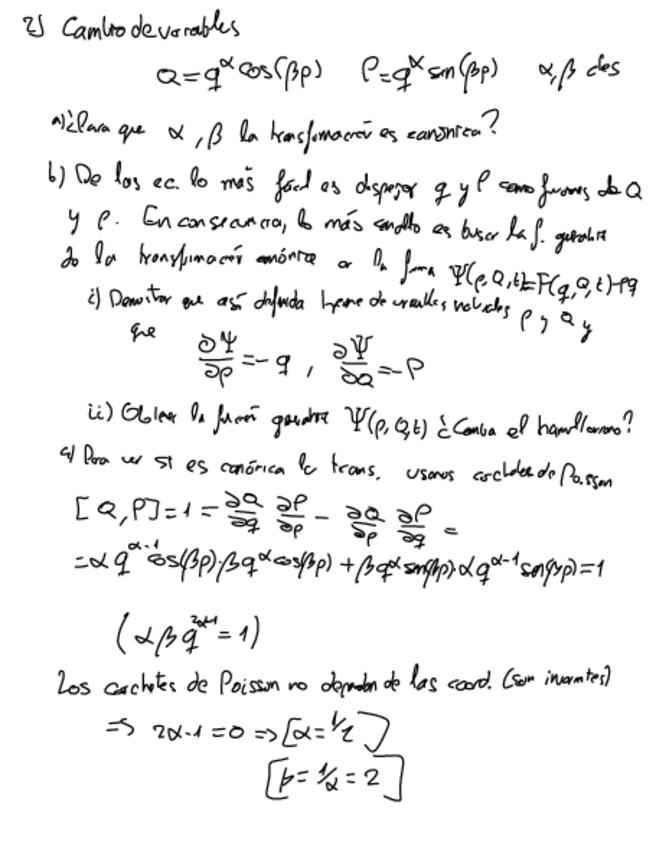 2) Cambio de variables
Q=q^α cos(βp) P=q^α sen(βp) α,β ctes
a) ¿Para que α, β la transformación es canónica?
b) De las ec. lo más fácil es despejar q y P como funciones de Q
y p. En consecuencia, lo más sencillo es buscar la f. generatriz
de la transformación canónica en la forma Ψ(p,Q,t)=F(q,Q,t)-pq
i) Demostrar que así definida tiene de variables naturales p y Q y
que ∂Ψ/∂p = -q , ∂Ψ/∂Q = -P
ii) Obtener la función generatriz Ψ(p,Q,t) ¿Cambia el hamiltoniano?
a) Para ver si es canónica la trans. usamos corchetes de Poisson
[Q,P]=1= ∂Q/∂q ∂P/∂p - ∂Q/∂p ∂P/∂q =
=αq^{α-1} cos(βp)·βq^α cos(βp) + βq^α sen(βp)·αq^{α-1} sen(βp)=1
(αβq^{2α-1}=1)
Los corchetes de Poisson no dependen de las coord. (son invariantes)
⇒ 2α-1=0 ⇒ [α=1/2]
[β=1/α=2]